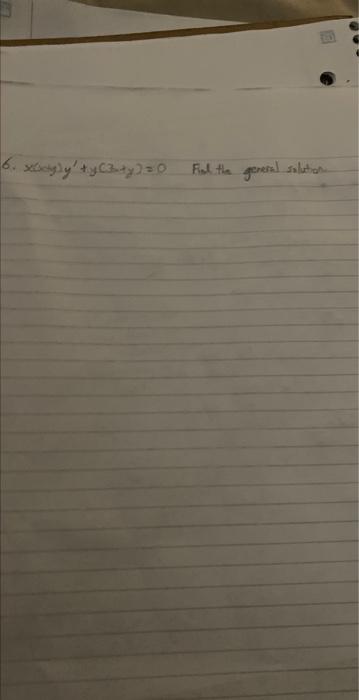 6. x(x+y)y' + y(3x+y) = 0 Find the general solution